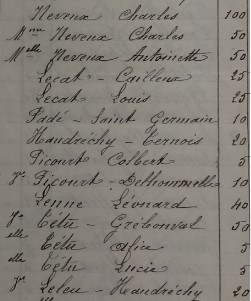 Neveux Charles 100
Mme Neveux Charles 50
Melle Neveux Antoinette 50
Lecat - Cailleux 25
Lecat Louis 25
Fadé - Saint Germain 10
Haudréchy - Ternois 20
Picourt Colbert 5
Ve Picourt - Delhommelle 10
Lenne Léonard 40
Ve Tétu - Grébonval 50
elle Tétu Afia 5
elle Tétu Lucie 5
Ve Leleu - Haudréchy 20